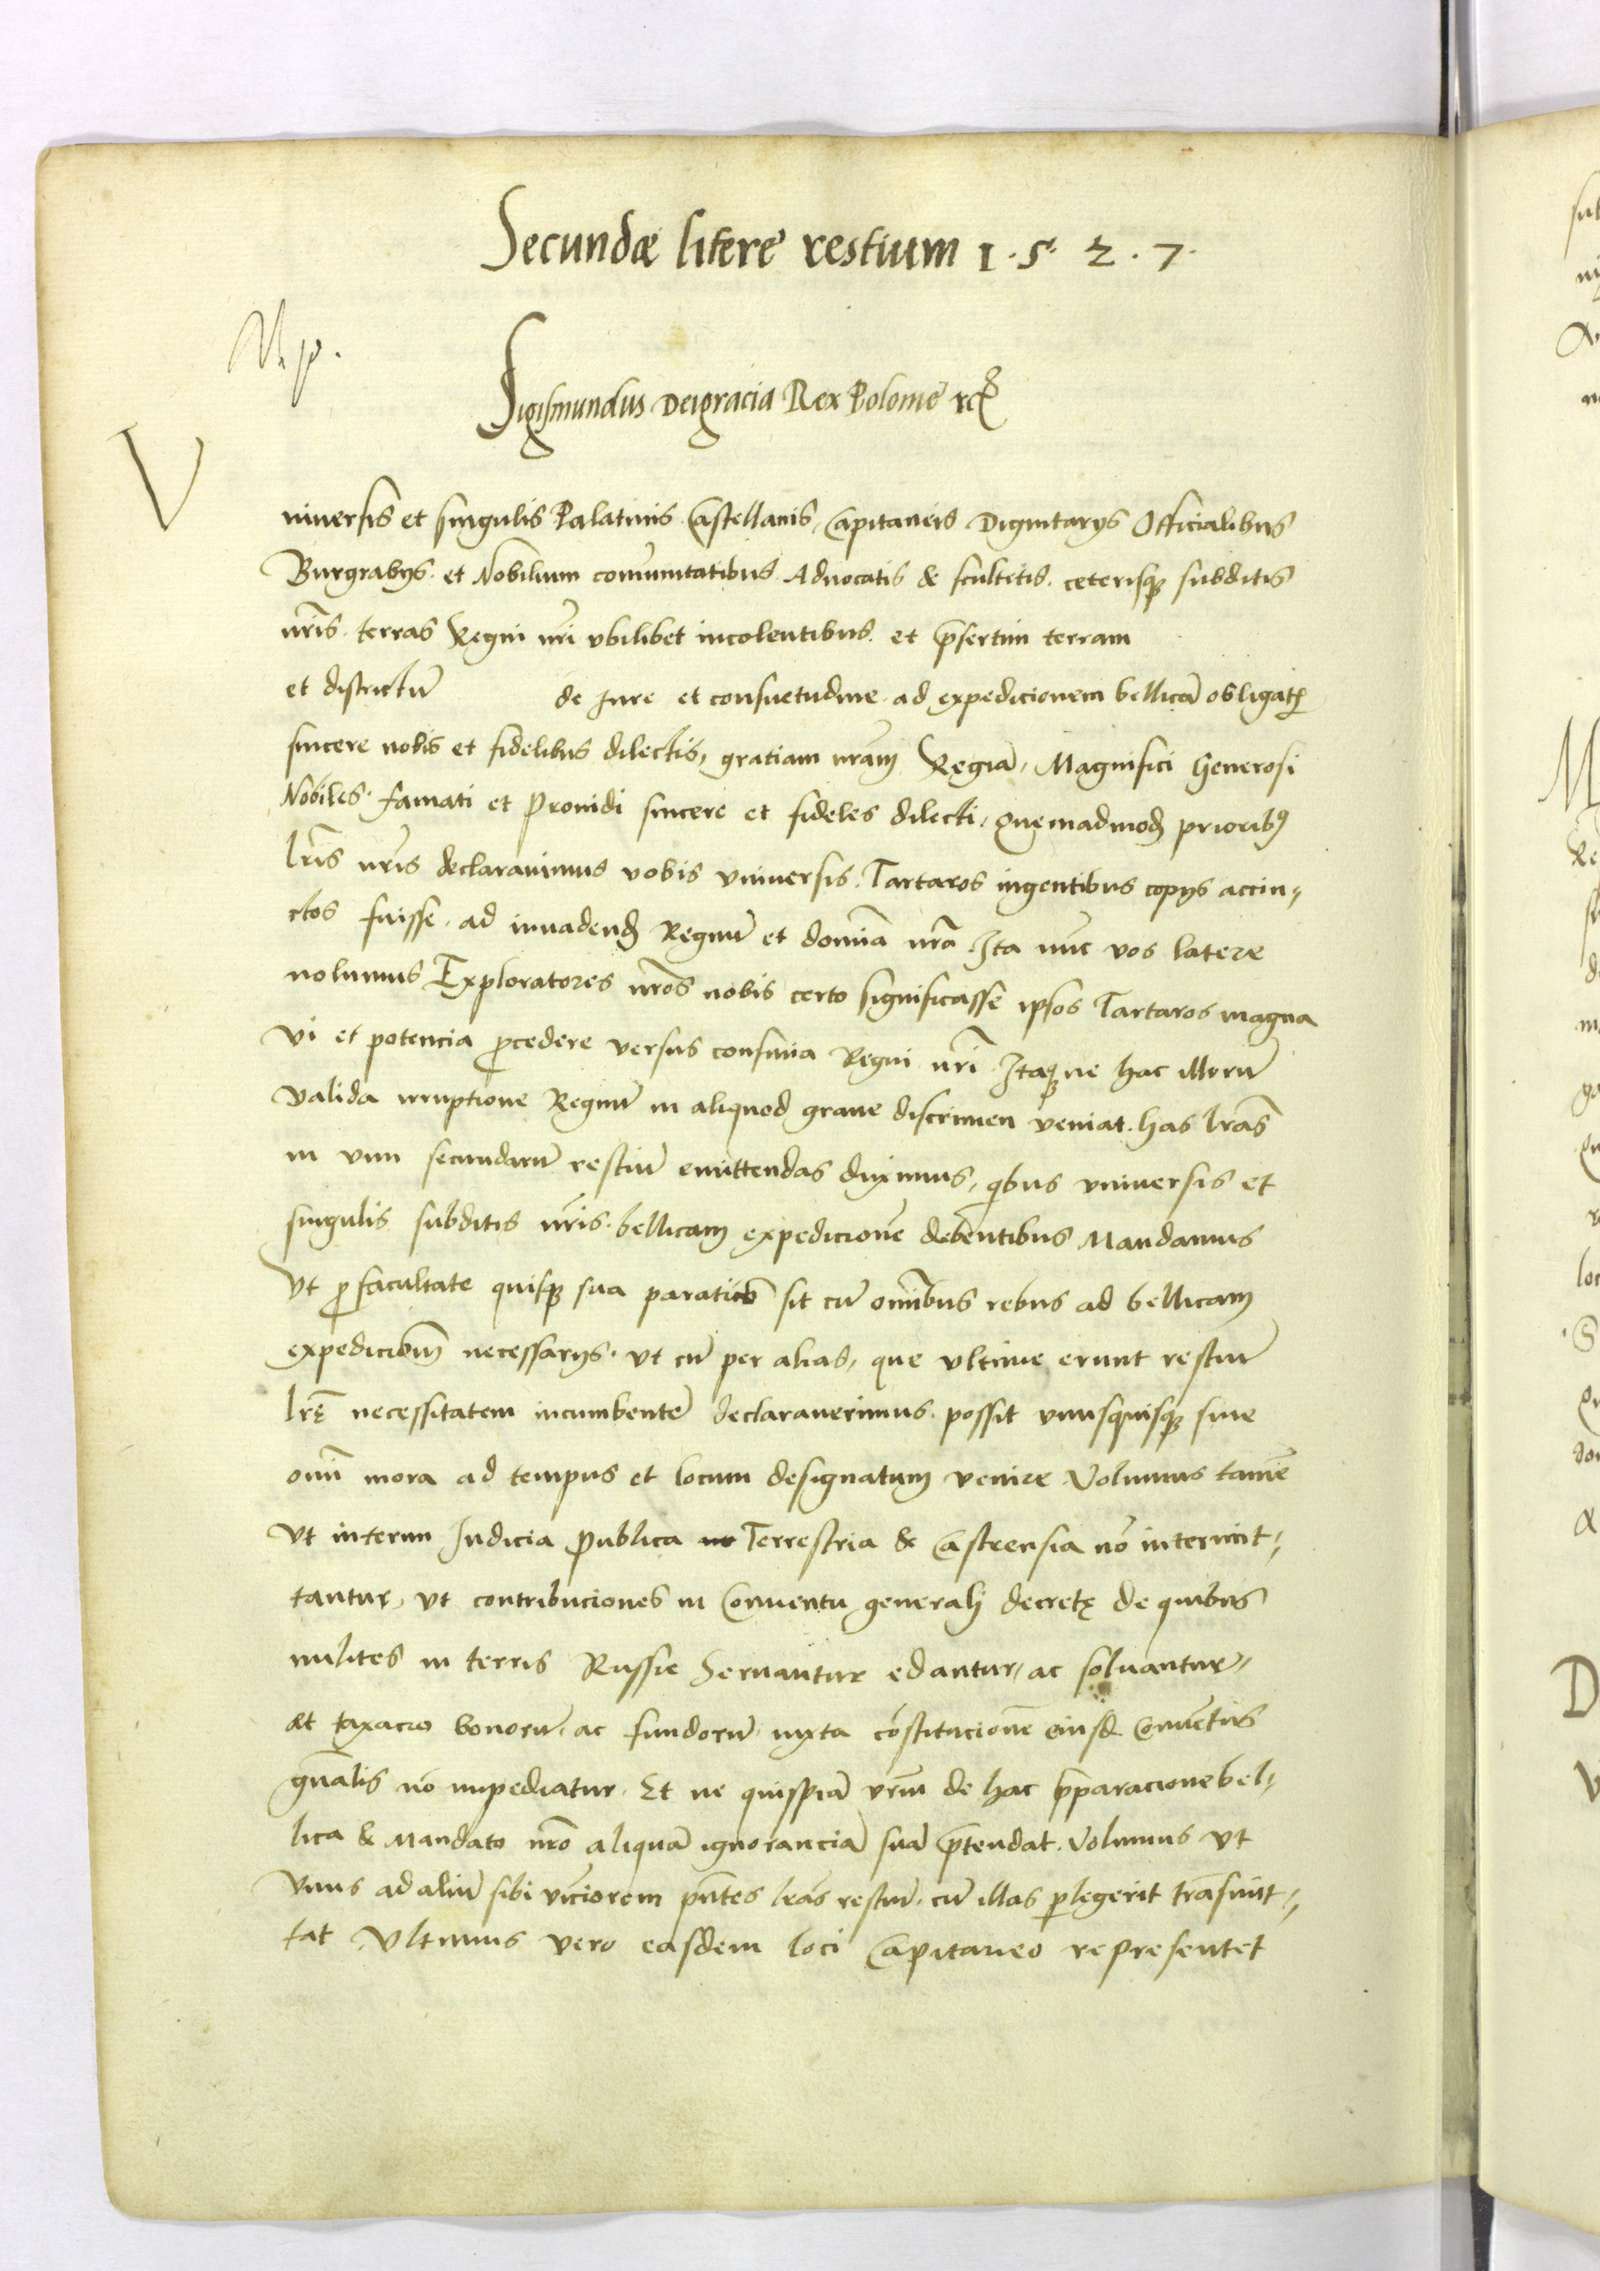 Secundæ litere restium 1.5.2.7.
Sigismundus Dei gracia Rex Polonie rc̃
V
niuersis et singulis Palatinis Castellanis, Capitaneis Dignitarijs Officialibus
Burgrabijs. et Nobilium com̄unitatibus Aduocatis & scultetis. ceterisq; subditis
nr̄is. terras Regni nr̄i vbilibet incolentibus. et p̄sertim terram
et districtū de Jure et consuetudine ad expedicionem bellicā obligat;
sincere nobis et fidelibus dilectis, gratiam nr̄am Regiā. Magnifici Generosi
Nobiles. famati et Prouidi sincere et fideles dilecti. Quemadmod; priorib9
lr̄is nr̄is declarauimus vobis vniuersis. Tartaros ingentibus copijs accin-
ctos fuisse. ad inuadend; Regnū et domīa nr̄a Ita nūc vos latere
nolumus Exploratores nr̄os nobis certo significasse ipsos Tartaros magna
vi et potencia p̄cedere versus confinia Regni nr̄i Itaq; ne hac illorū
valida irruptione Regnū in aliquod graue discrimen veniat. has lr̄as
in vim secundarū restiū emittendas duximus, q̄bus vniuersis et
singulis subditis nr̄is. bellicam expedicionē debentibus Mandamus
Vt p̄ facultate quisq; sua paratus sit cū om̄ibus rebus ad bellicam
expedicionē necessarijs. vt cū per alias, que vltime erunt restiū
lr̄ę necessitatem incumbentē declarauerimus. possit vnusquisq; sine
om̄i mora ad tempus et locum designatum venire Volumus tamē
Vt interim Judicia Publica Terrestria & Castrensia nō intermit-
tantur, vt contribuciones in Conuentu generali decretę de quibus
milites in terris Russie Seruantur edantur, ac soluantur,
et taxacio bonorū, ac fundorū iuxta cōstitucionē eiusd Conuētus
gn̄alis nō impediatur. Et ne quispiā vr̄m de hac p̄paracione bel-
lica & Mandato nr̄o aliquā ignoranciā suā p̄tendat. Volumus vt
Vnus ad aliū sibi viciorem pn̄tes lr̄as restiū, cū illas p̄legerit trāsmit-
tat Vltimus vero easdem loci Capitaneo representet